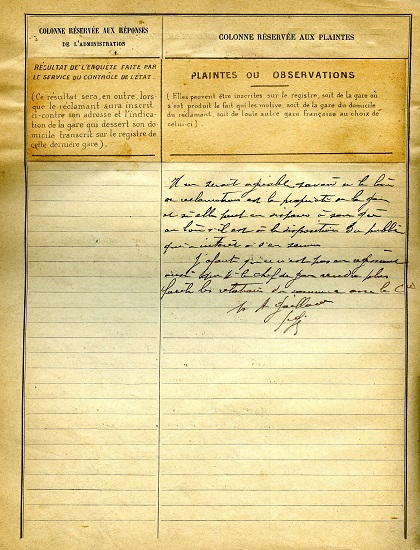 COLONNE RÉSERVÉE AUX RÉPONSES
DE L'ADMINISTRATION
RÉSULTAT DE L'ENQUÊTE FAITE PAR
LE SERVICE DU CONTRÔLE DE L'ÉTAT.
(Ce résultat sera, en outre, lors-
que le réclamant aura inscrit
ci-contre son adresse et l'indica-
tion de la gare qui dessert son do-
micile transcrit sur le registre de
cette dernière gare).
COLONNE RÉSERVÉE AUX PLAINTES
PLAINTES OU OBSERVATIONS
(Elles peuvent être inscrites sur le registre, soit de la gare où
s'est produit le fait qui les motive, soit de la gare du domicile
du réclamant, soit de toute autre gare française au choix de
celui-ci)
Il me serait agréable savoir si le livre
de réclamations est la propriété de la gare
et si elle peut en disposer à son gré
ou bien s'il est à la disposition du public
qui a intérêt à s'en servir
J'ajoute que ce n'est pas en
ainsi que le chef de gare rendra plus
facile les relations du commerce avec la Cie